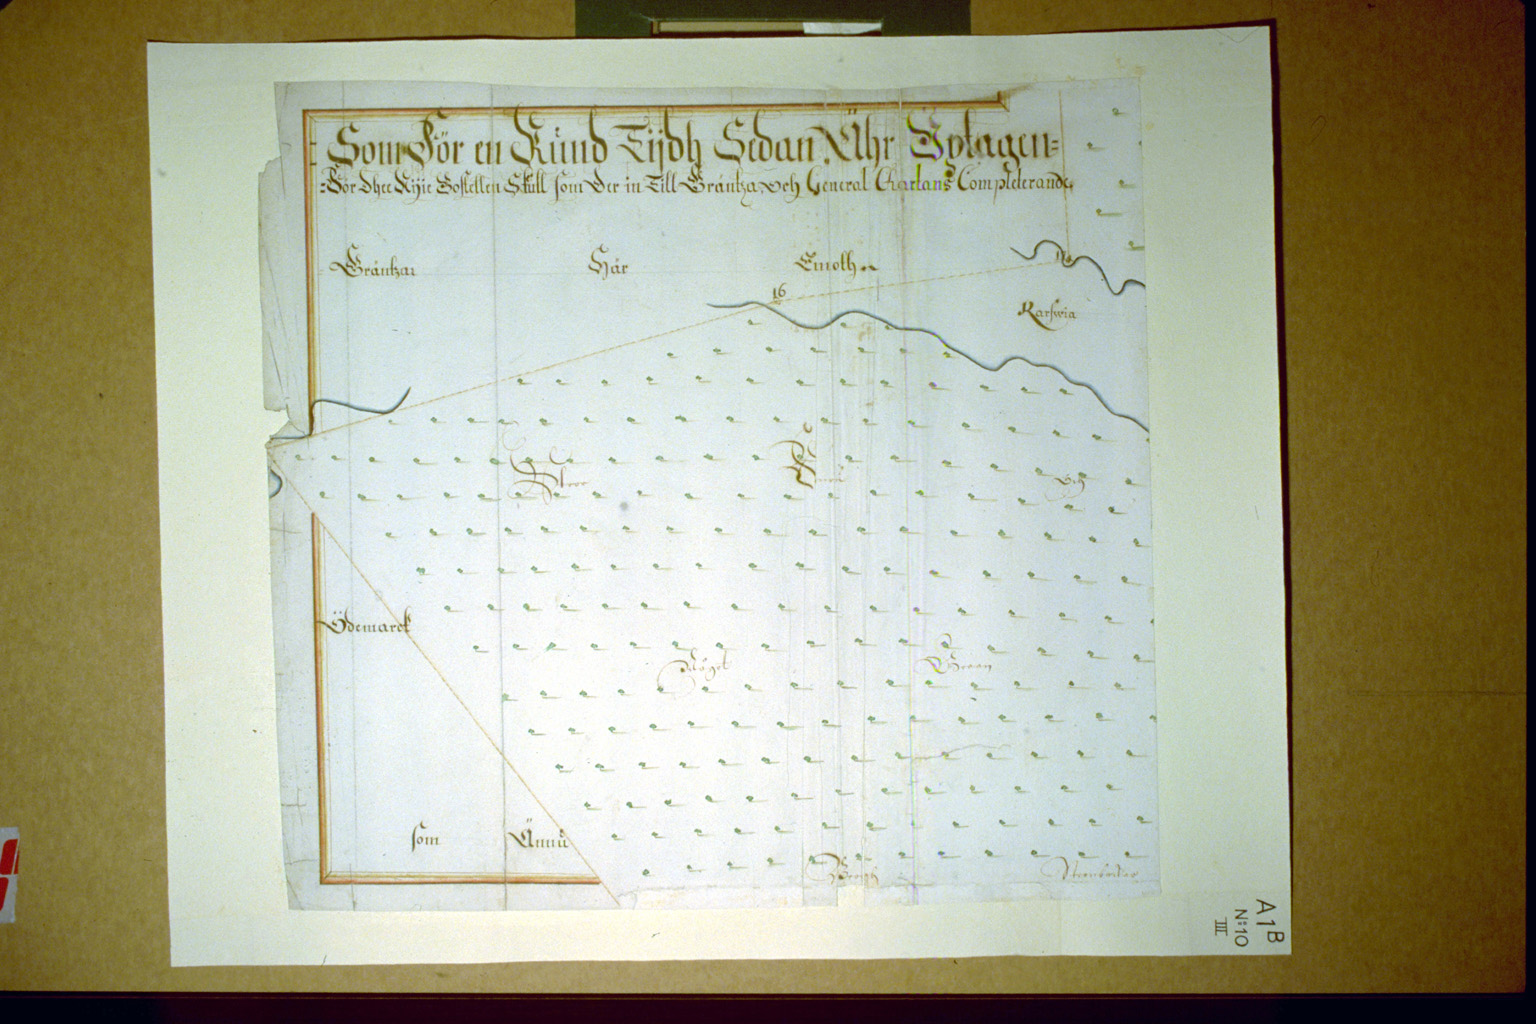 Som För en Rùnd Tijdh Sedan Ähr Optagen=
=För dhee Nijie Bostellen Skull som der in Till Gräntza och General Chartans Completerande
Gräntzar Här Emoth
16
Karswia
Stoor Furù och
Ödemarck
Högel Green
som Ännù
Bergh Steenbackar
A1B
N:10
III